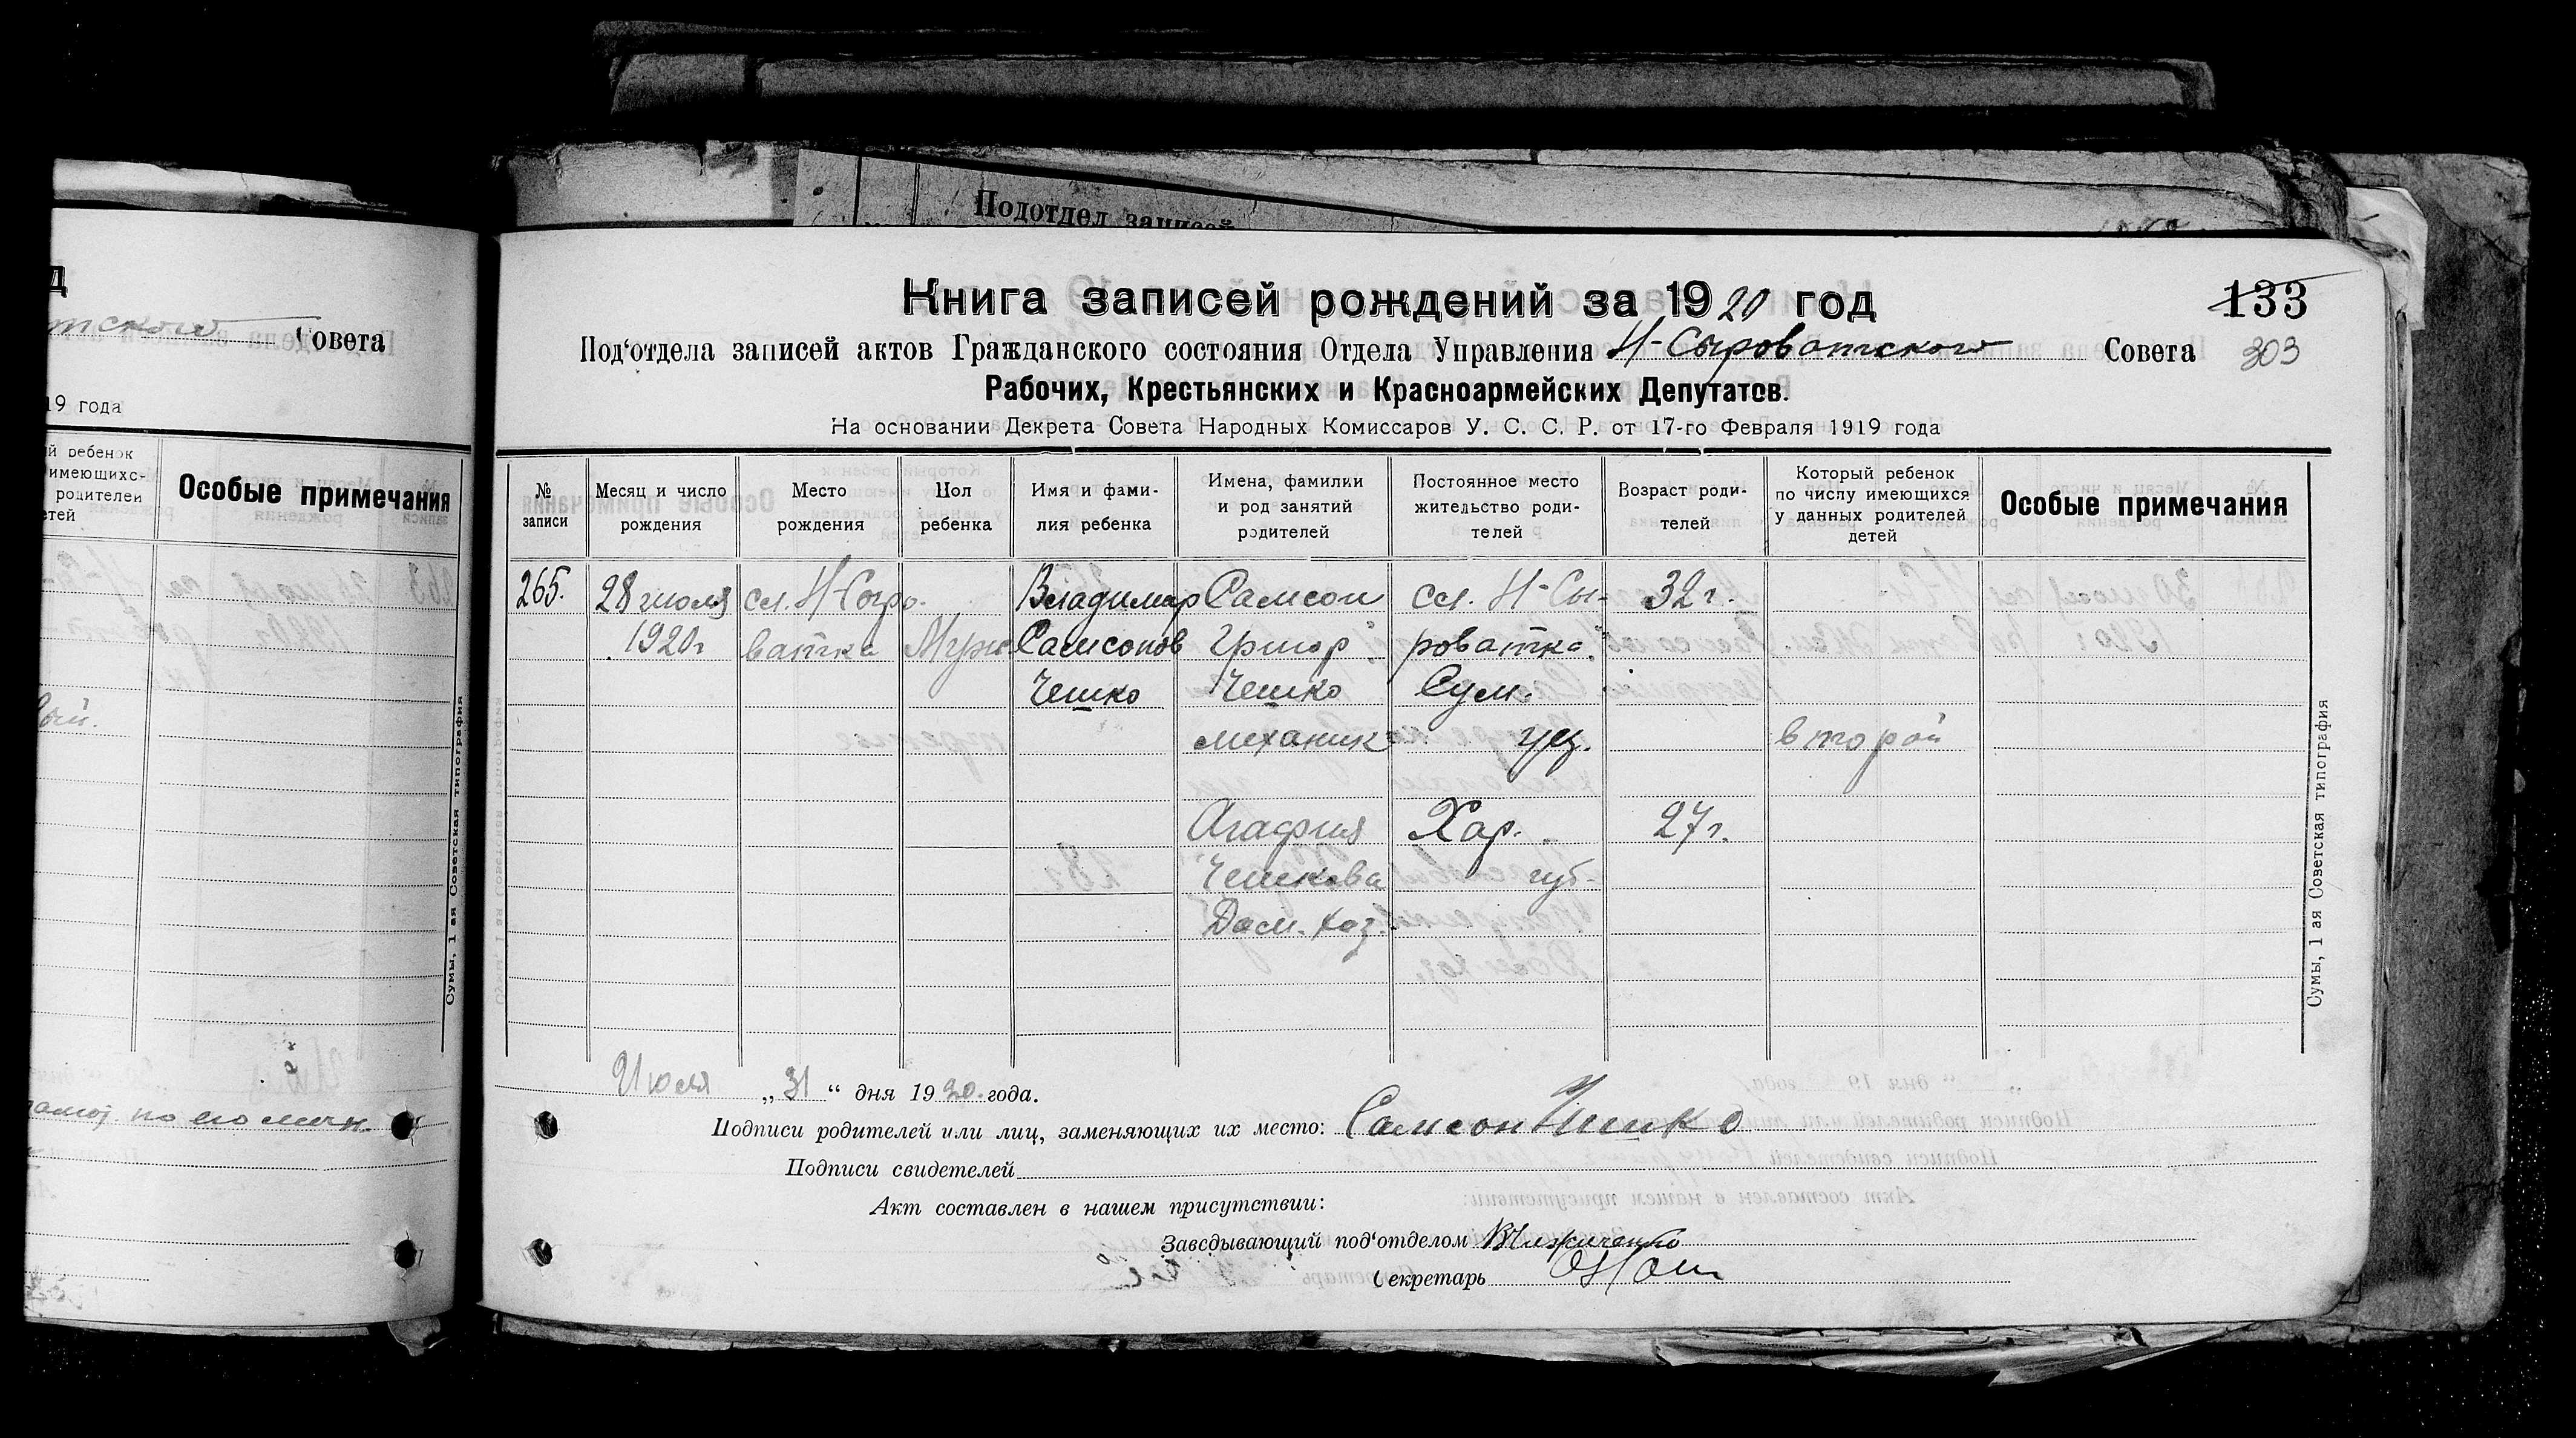 Подотдел записей
д
Совета
19 года
й ребенок
имеющихс-
родителей
етей
Особые примечания
Сумы, 1 ая Советская типография
по
Книга записей рождений за 1920 год
133
Под'отдела записей актов Гражданского состояния Отдела Управления Н-Сыроватского Совета
303
Рабочих, Крестьянских и Красноармейских Депутатов.
На основании Декрета Совета Народных Комиссаров У. С. С. Р. от 17-го Февраля 1919 года
№ записи
Месяц и число рождения
Место рождения
Пол ребенка
Имя и фами-лия ребенка
Имена, фамилии и род занятий родителей
Постоянное место жительство роди-телей
Возраст роди-телей
Который ребенок по числу имеющихся у данных родителей детей
Особые примечания
265. 28 июля сл. Н-Сыро- Владимир Самсон сл. Н-Сы- 32 г.
1920 г ватка Муж. Самсонов Григор. роватка
Чешко Чешко Сум.
механик уез. второй
Агафия Хар. 27 г.
Чешкова губ-
Дом. хоз.
Сумы, 1 ая Советская типография
Июля „31“ дня 1920 года.
Подписи родителей или лиц, заменяющих их место: Самсон Чешко
Подписи свидетелей
Акт составлен в нашем присутствии:
Заведывающий под'отделом
Секретарь